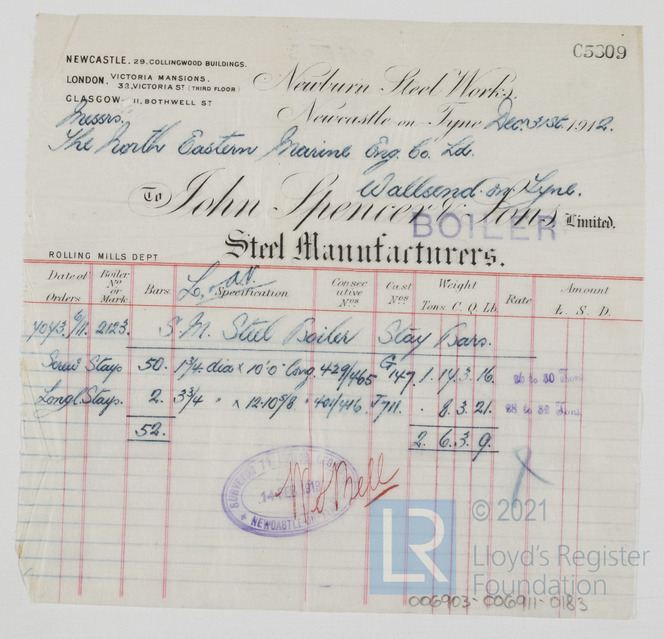 C5309
NEWCASTLE. 29. COLLINGWOOD BUILDINGS.
LONDON. VICTORIA MANSIONS.
32, VICTORIA ST (THIRD FLOOR)
GLASGOW. 11, BOTHWELL ST
Newburn Steel Works,
Newcastle on Tyne Dec. 31st. 1912.
Messrs.
The North Eastern Marine Eng. Co. Ld.
Wallsend. on Tyne.
To John Spencer & Sons, Limited.
BOILER
Steel Manufacturers.
ROLLING MILLS DEPT
Date of Orders Boiler No or Mark. Bars. Specification Consecutive Nos Cast Nos Weight Tons. C. Q. Lb. Rate Amount £. S. D.
4043. 6/11. 2123. S. M. Steel Boiler Stay Bars.
Screw Stays 50. 1 3/4 dia x 10'0" long. 429/465 G 147. 1. 14. 3. 16. 26 to 30 Tons.
Longl. Stays. 2. 3 3/4 " x 12-10 5/8 " 401/416 J711. . 8. 3. 21. 28 to 32 Tons.
52. 2. 6. 3. 9.
14 FEB 1913
NEWCASTLE
© 2021
LR Lloyd's Register
Foundation
006903-006911-0183